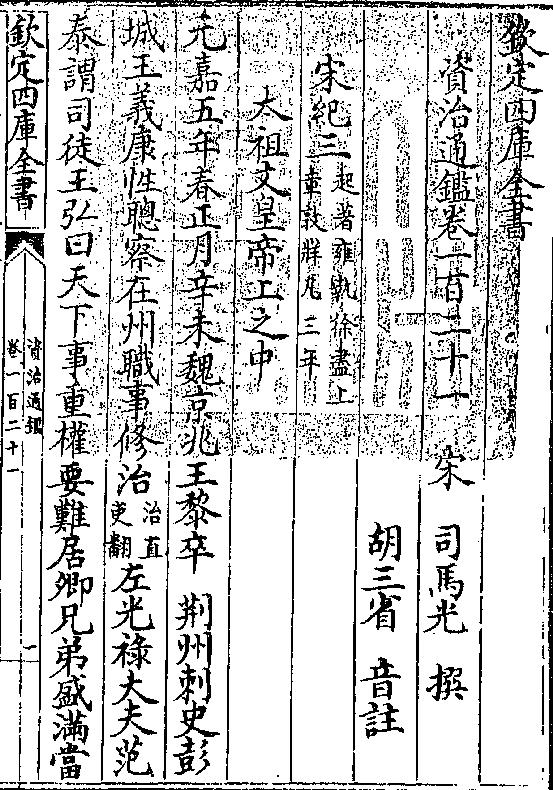 欽定四庫全書
資治通鑑卷一百二十一
宋 司馬光 撰
胡三省 音註
宋紀三起著雍執徐盡上章敦牂凡三年
太祖文皇帝上之中
元嘉五年春正月辛未魏京兆王黎卒 荆州刺史彭
城王義康性聰察在州職事修治治直吏翻左光祿大夫范
泰謂司徒王弘曰天下事重權要難居卿兄弟盛滿當
欽定四庫全書
資治通鑑
卷一百二十一
一